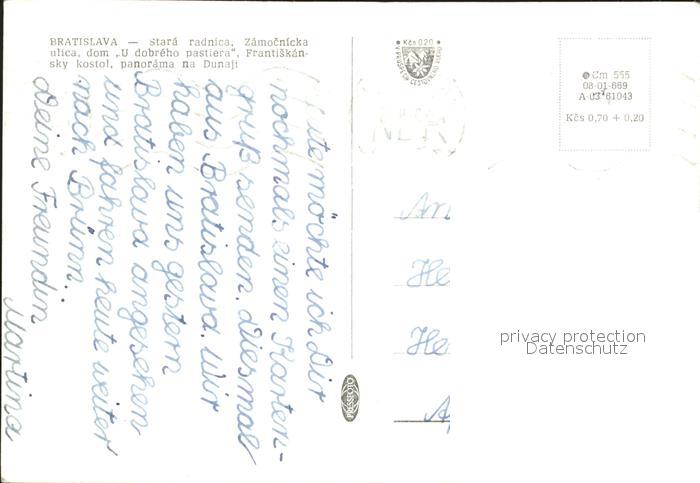 BRATISLAVA — Stará radnica, Zámočnícka
ulica, dom „U dobrého pastiera", Františkán-
sky kostol, panoráma na Dunaji
Heute möchte ich Dir
nochmals einen Karten-
gruß senden. Diesmal
aus Bratislava. Wir
haben uns gestern
Bratislava angesehen
und fahren heute weiter
nach Brünn.
Deine Freundin
Martina
Kčs 0,20
PRESSFOTO
Cm 555
08-01-669
A-03*61043
Kčs 0,70 + 0,20
An
He
He
privacy protection
Datenschutz